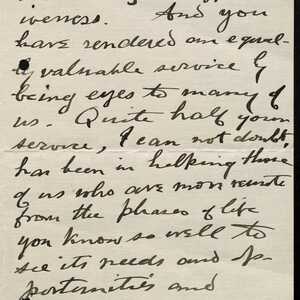 iveness. And you
have rendered an equal-
ly valuable service by
being eyes to many of
us. Quite half your
service, I can not doubt,
has been in helping those
of us who are more remote
from the phases of life
you know so well to
see its needs and op-
portunities and